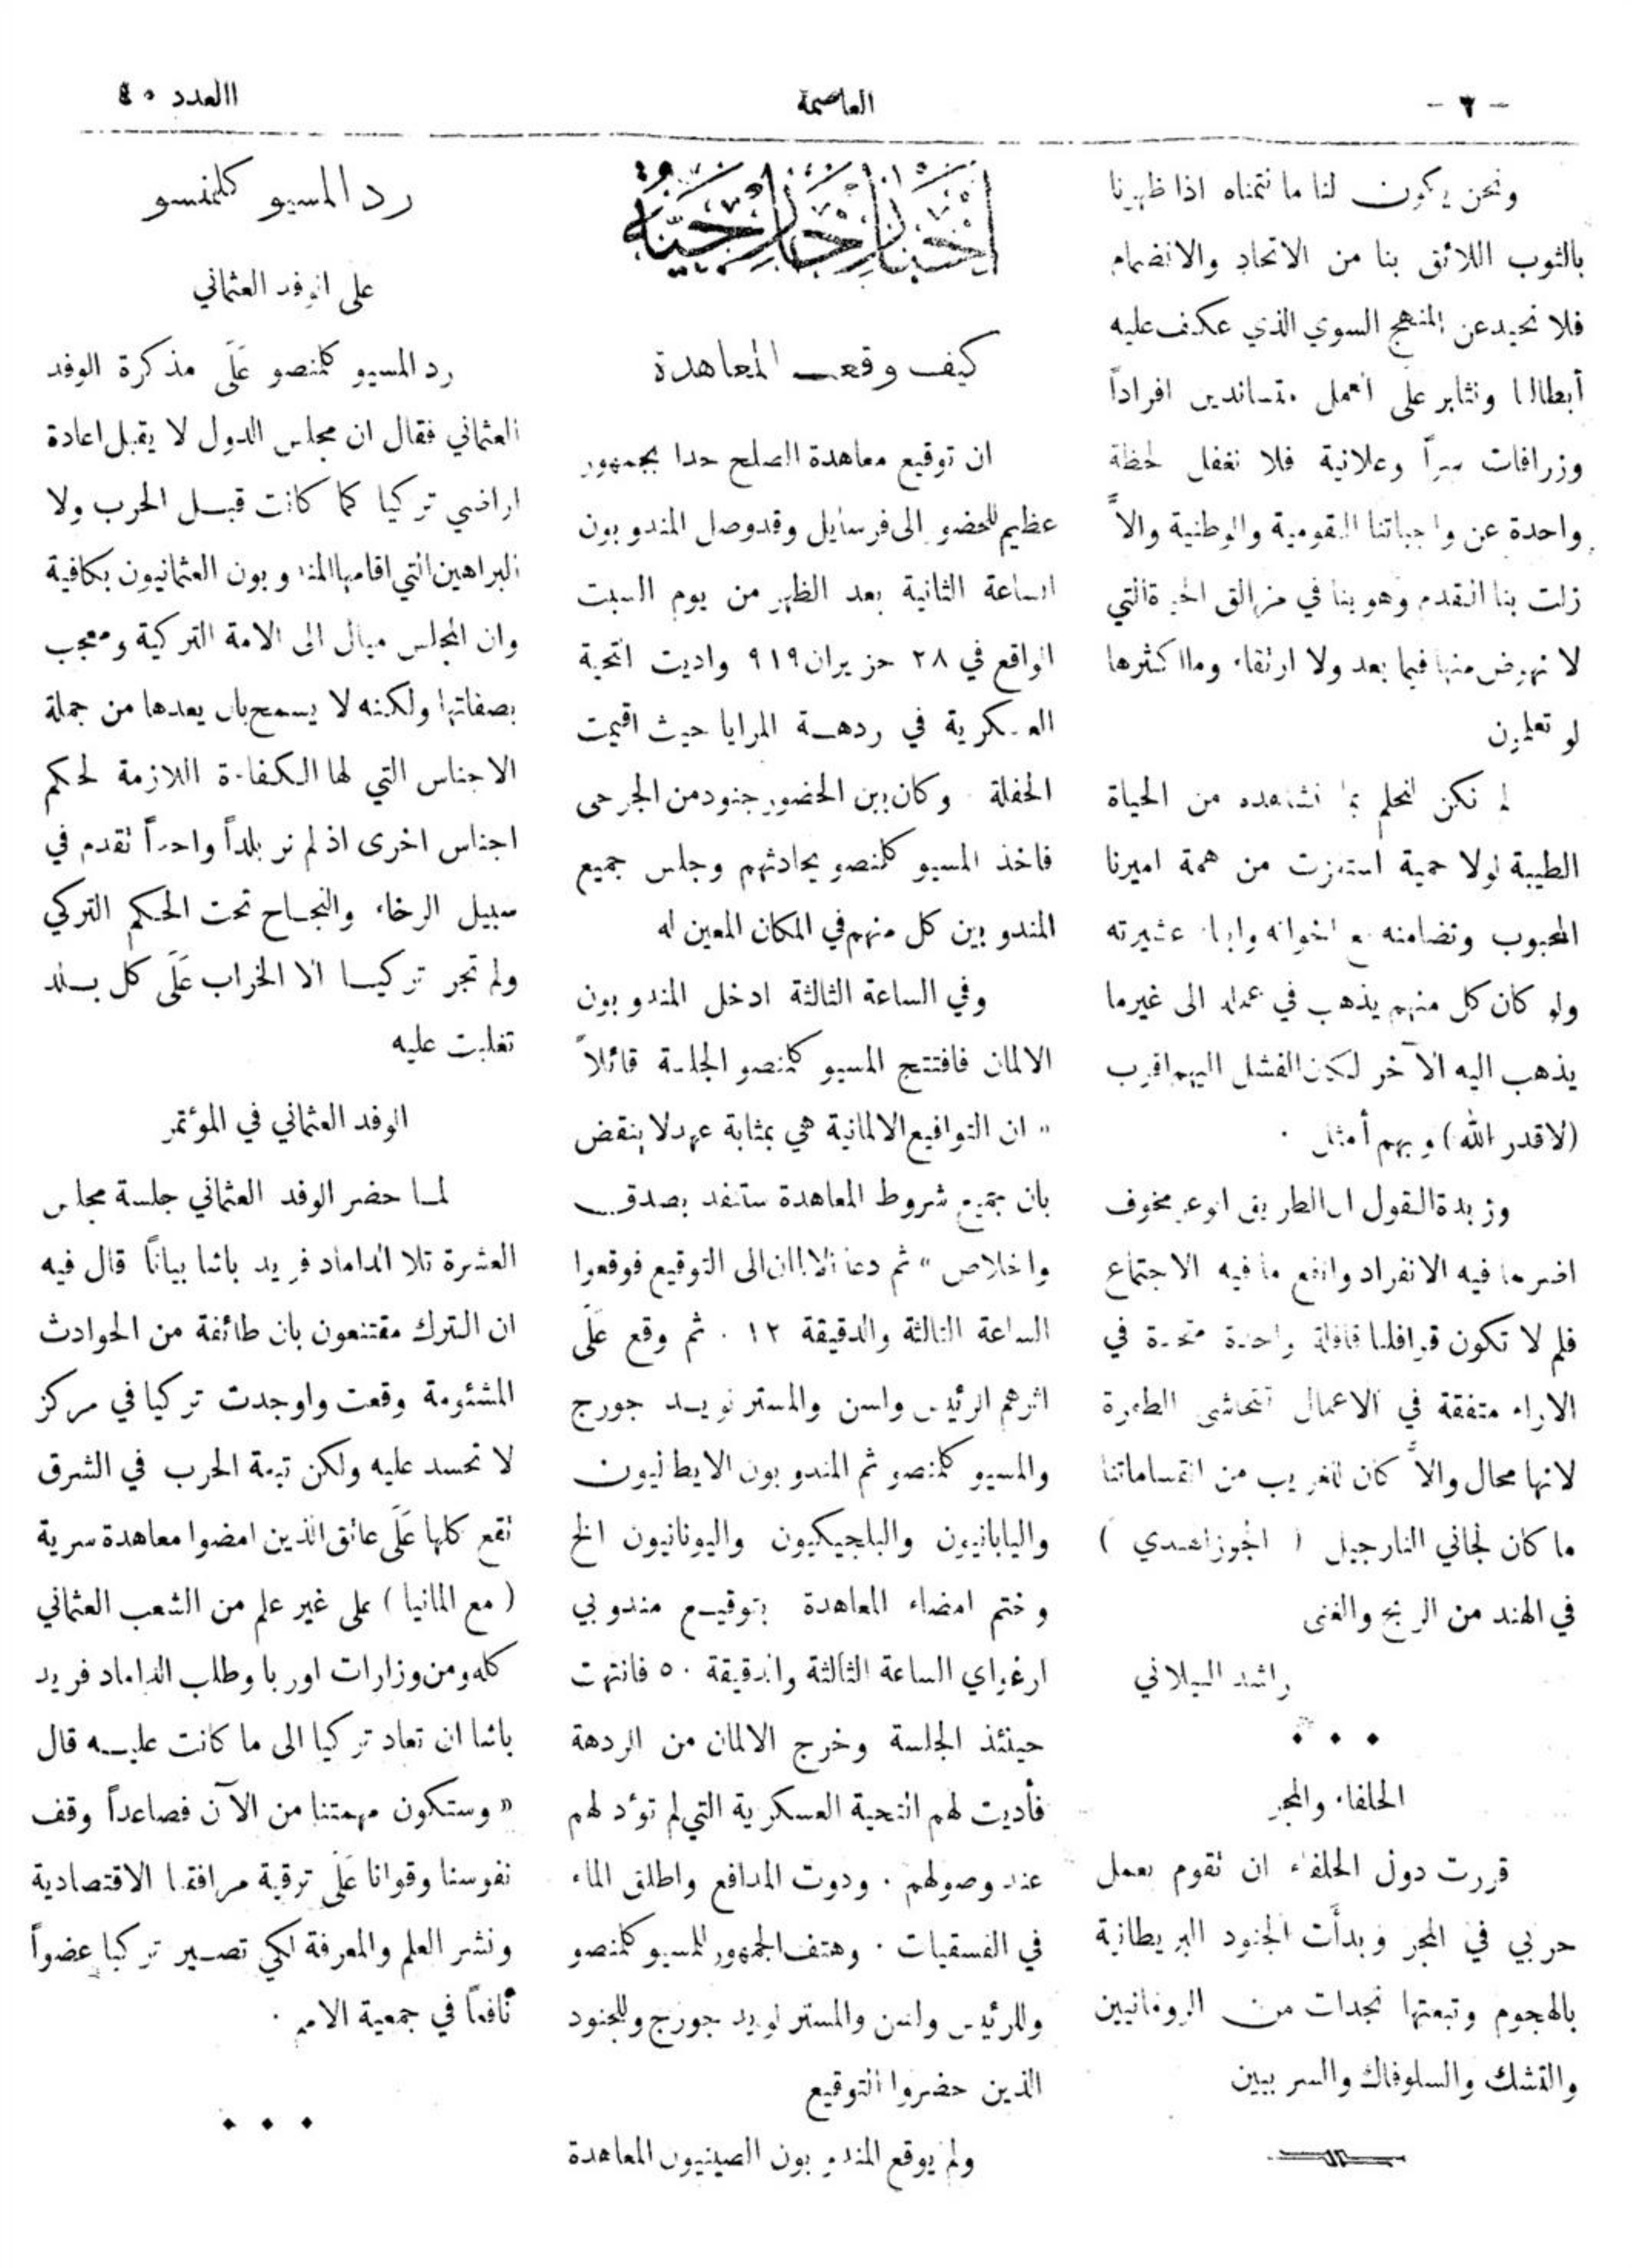 - ٣ -
العاصمة
العدد ٤٠
ونحن يكون لنا ما نتمناه اذا ظهرنا
بالثوب اللائق بنا من الاتحاد والانضمام
فلا نحيد عن المنهج السوي الذي عكف عليه
أبطالنا ونثابر على العمل متساندين افراداً
وزرافات سراً وعلانية فلا نغفل لحظة
واحدة عن واجباتنا القومية والوطنية والاَّ
زلت بنا القدم وهو بنا في مزالق الحيرة التي
لا نهوض منها فيما بعد ولا ارتقاء وما اكثرها
لو تعلمون
لم نكن لنحلم بما نشاهده من الحياة
الطيبة لولا حمية استفزت من همة اميرنا
المحبوب وتضامنه مع اخوانه وابناء عشيرته
ولو كان كل منهم يذهب في عمله الى غير ما
يذهب اليه الآخر لكان الفشل اليهم اقرب
(لا قدر الله) وبهم أمثل .
وزبدة القول ان الطريق اوعر مخوف
اضر ما فيه الانفراد وانفع ما فيه الاجتماع
فلم لا تكون قوافلنا قافلة واحدة متحدة في
الاراء متفقة في الاعمال تتحاشى الطفرة
لانها محال والاَّ كان للغريب من انقساماتنا
ما كان لجاني النارجيل ( الجوز الهندي )
في الهند من الربح والغنى
راشد البيلاني
الحلفاء والمجر
قررت دول الحلفاء ان تقوم بعمل
حربي في المجر وبدأَت الجنود البريطانية
بالهجوم وتبعتها نجدات من الرومانيين
والتشك والسلوفاك والسربيين
اخبار خارجية
كيف وقعت المعاهدة
ان توقيع معاهدة الصلح حدا بجمهور
عظيم للحضور الى فرسايل وقد وصل المندوبون
الساعة الثانية بعد الظهر من يوم السبت
الواقع في ٢٨ حزيران ٩١٩ واديت التحية
العسكرية في ردهة المرايا حيث اقيمت
الحفلة وكان بين الحضور جنود من الجرحى
فاخذ المسيو كلمنصو يحادثهم وجلس جميع
المندوبين كل منهم في المكان المعين له
وفي الساعة الثالثة ادخل المندوبون
الالمان فافتتح المسيو كلمنصو الجلسة قائلاً
« ان التواقيع الالمانية هي بمثابة عهد لا ينقض
بان جميع شروط المعاهدة ستنفذ بصدق
واخلاص » ثم دعا الالمان الى التوقيع فوقعوا
الساعة الثالثة والدقيقة ١٢ . ثم وقع عَلَى
اثرهم الرئيس ولسن والمستر لويد جورج
والمسيو كلمنصو ثم المندوبون الايطاليون
واليابانيون والبلجيكيون واليونانيون الخ
وختم امضاء المعاهدة بتوقيع مندوبي
ارغواي الساعة الثالثة والدقيقة ٥٠ فانتهت
حينئذ الجلسة وخرج الالمان من الردهة
فأديت لهم التحية العسكرية التي لم تؤد لهم
عند وصولهم . ودوت المدافع واطلق الماء
في الفسقيات . وهتف الجمهور للمسيو كلمنصو
وللرئيس ولسن والمستر لويد جورج وللجنود
الذين حضروا التوقيع
ولم يوقع المندوبون الصينيون المعاهدة
رد المسيو كلمنسو
على الوفد العثماني
رد المسيو كلمنصو عَلَى مذكرة الوفد
العثماني فقال ان مجلس الدول لا يقبل اعادة
اراضي تركيا كما كانت قبل الحرب ولا
البراهين التي اقامها المندوبون العثمانيون بكافية
وان المجلس ميال الى الامة التركية ومعجب
بصفاتها ولكنه لا يسمح بان يعدها من جملة
الاجناس التي لها الكفاءة اللازمة لحكم
اجناس اخرى اذ لم نر بلداً واحداً تقدم في
سبيل الرخاء والنجاح تحت الحكم التركي
ولم تجر تركيا الا الخراب عَلَى كل بلد
تغلبت عليه
الوفد العثماني في المؤتمر
لما حضر الوفد العثماني جلسة مجلس
العشرة تلا الداماد فريد باشا بياناً قال فيه
ان الترك مقتنعون بان طائفة من الحوادث
المشئومة وقعت واوجدت تركيا في مركز
لا تحسد عليه ولكن تبعة الحرب في الشرق
تقع كلها عَلَى عاتق الذين امضوا معاهدة سرية
( مع المانيا ) على غير علم من الشعب العثماني
كله ومن وزارات اوربا وطلب الداماد فريد
باشا ان تعاد تركيا الى ما كانت عليه قال
« وستكون مهمتنا من الآن فصاعداً وقف
نفوسنا وقوانا عَلَى ترقية مرافقنا الاقتصادية
ونشر العلم والمعرفة لكي تصير تركيا عضواً
نافعاً في جمعية الامم .